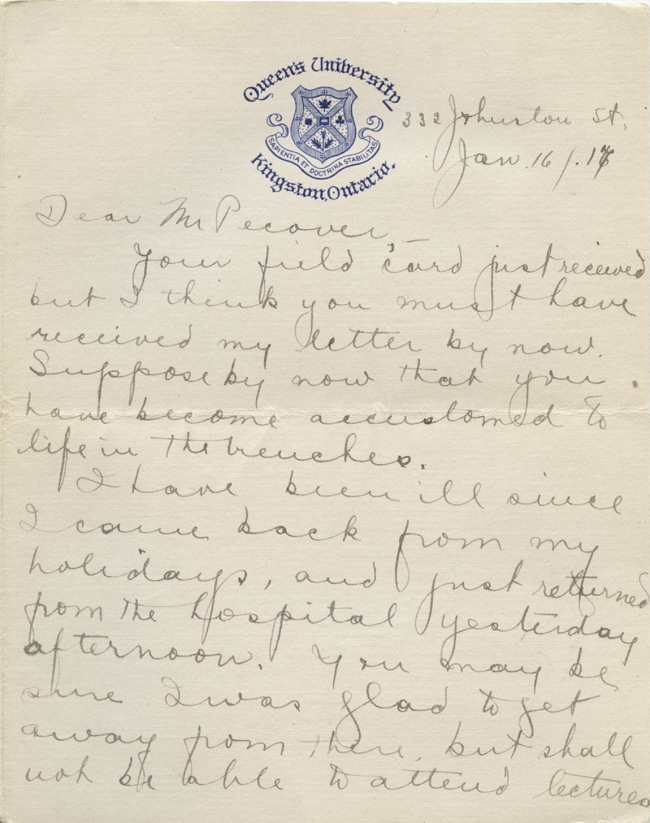 Queen's University
SAPIENTIA ET DOCTRINA STABILITAS
Kingston, Ontario.
332 Johnston St.
Jan. 16/.17
Dear Mr Pecover
Your field card just received
but I think you must have
received my letter by now.
Suppose by now that you
have become accustomed to
life in the trenches.
I have been ill since
I came back from my
holidays, and just returned
from the hospital yesterday
afternoon. You may be
sure I was glad to get
away from there, but shall
not be able to attend lectures